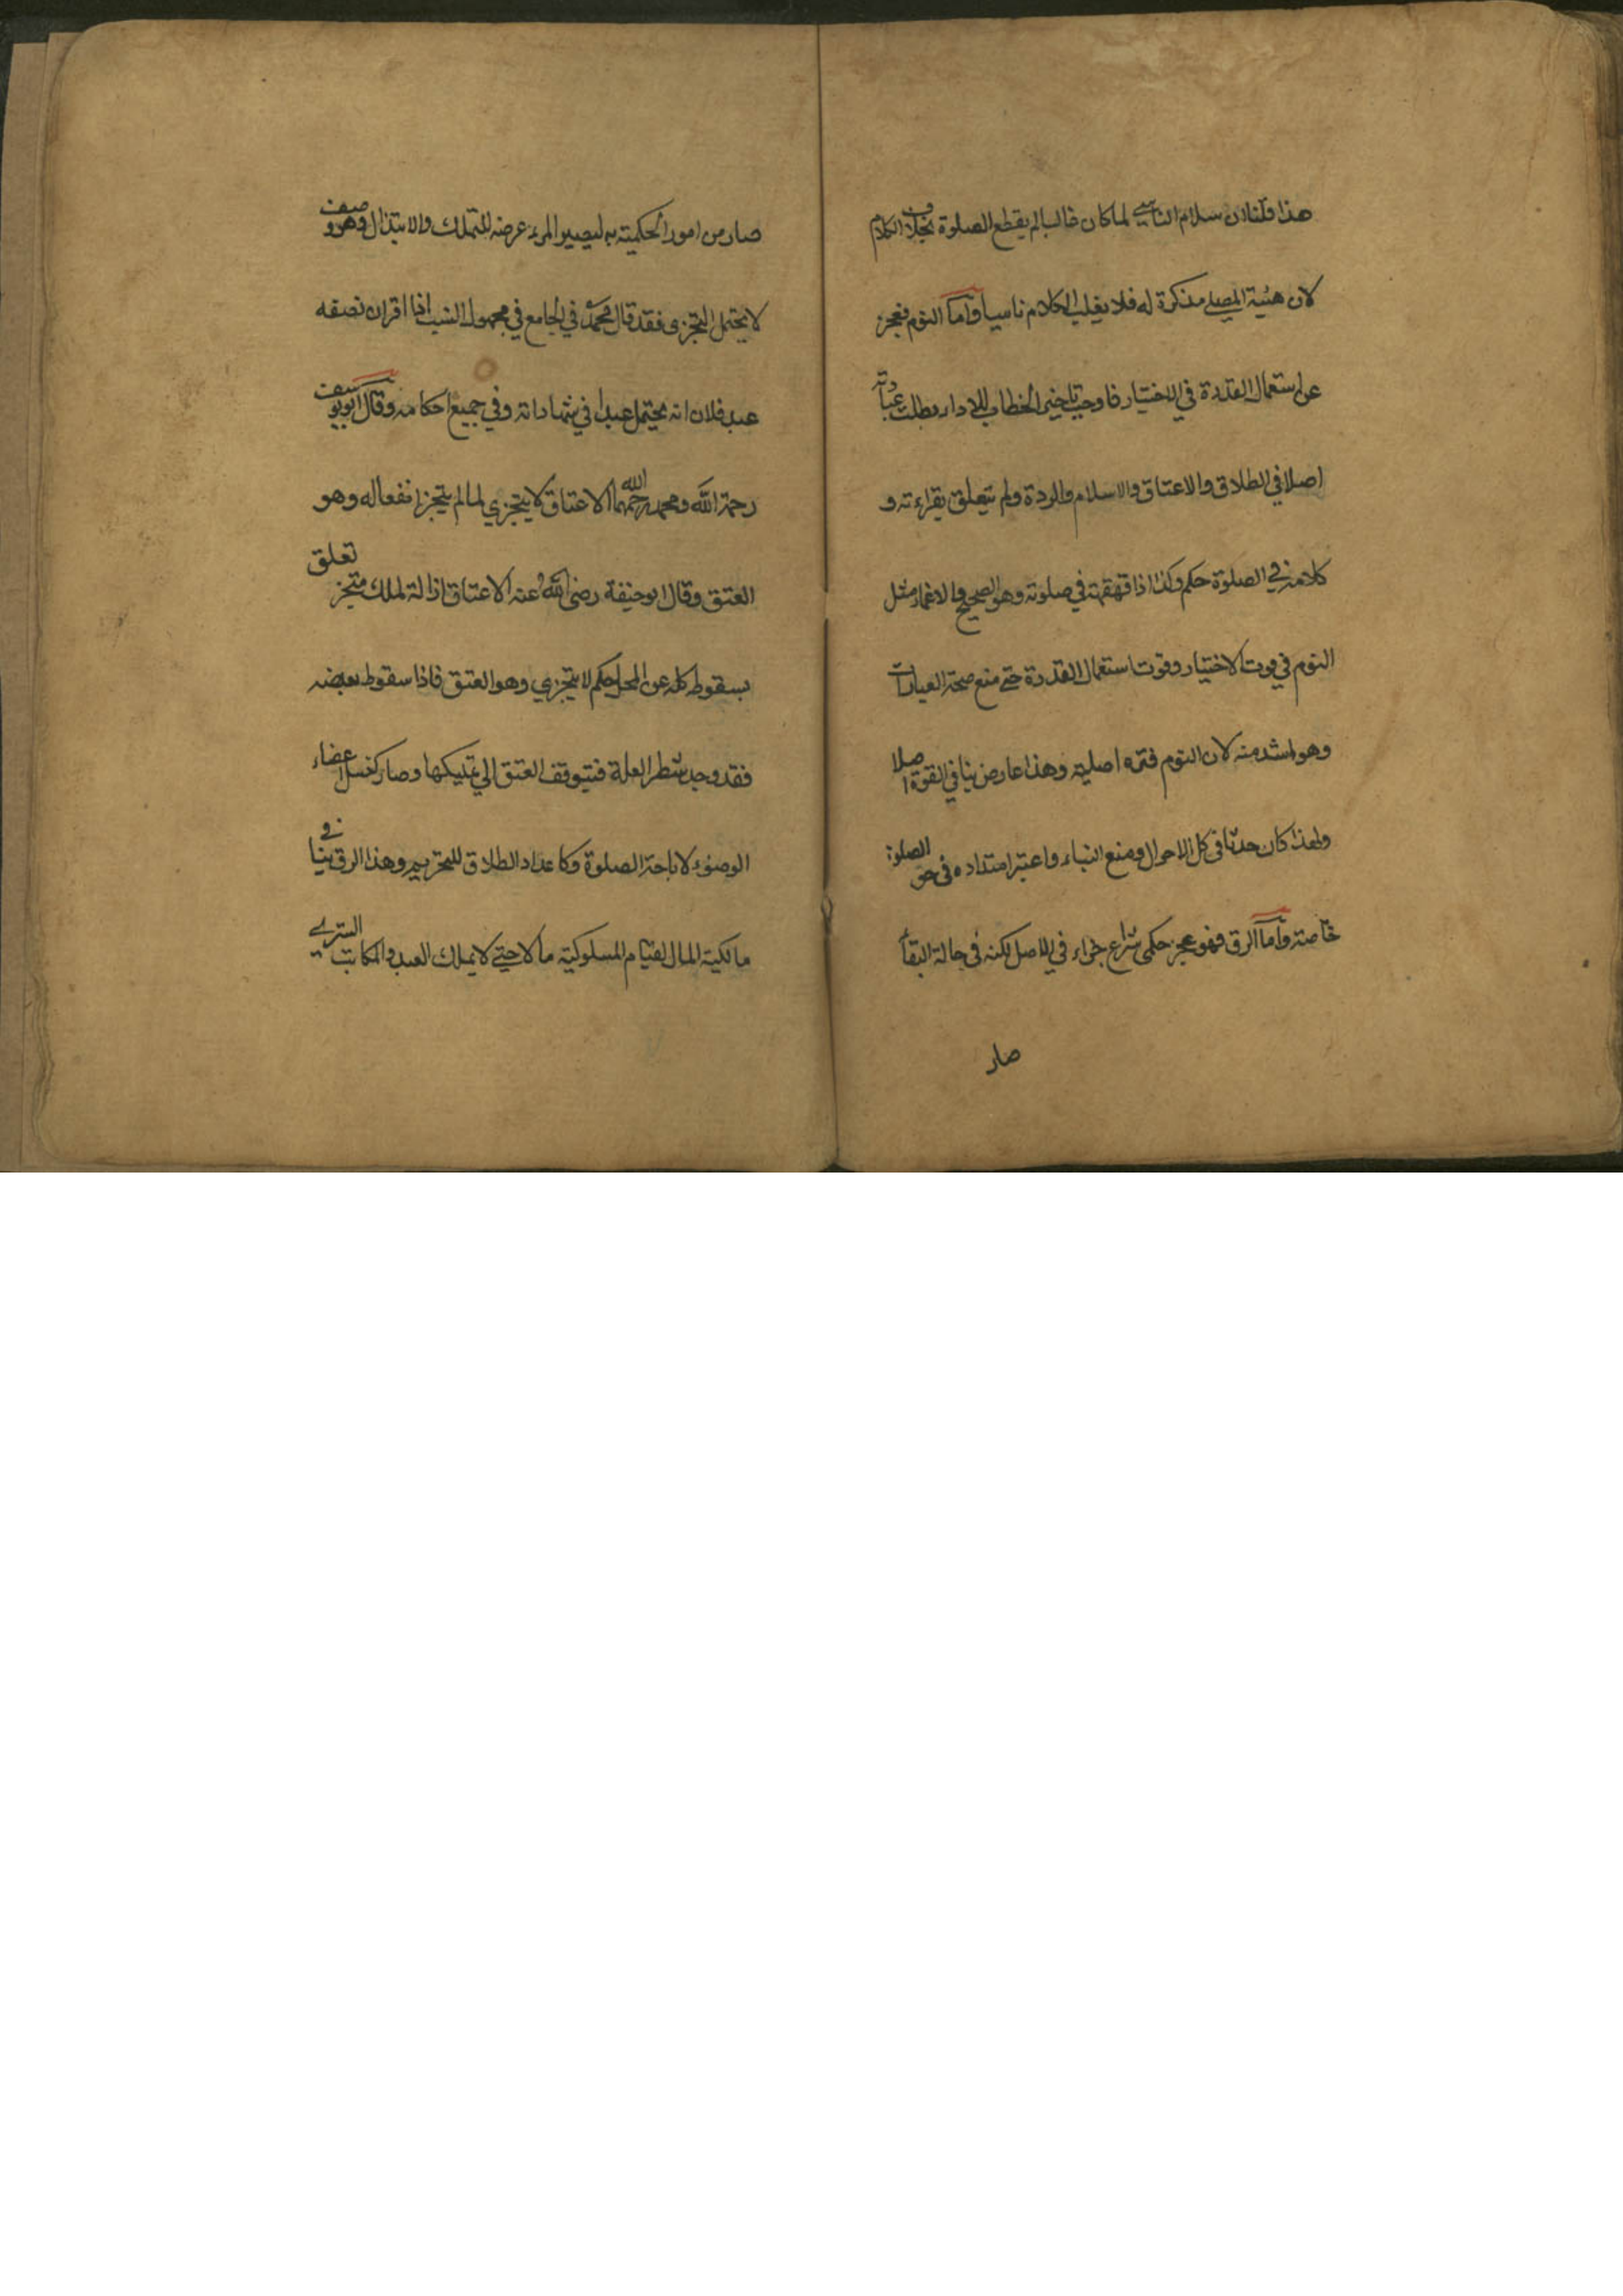 هذا قلنا ان سلام الناسي لما كان غالبا لم يقطع الصلوة بخلاف الكلام
لان هيئة المصلي مذكرة له فلا يغلب الكلام ناسيا واما النوم فعجز
عن استعمال القدرة في الاختيار فاوجب تاخير الخطاب للاداء وبطلت عباراته
اصلا في الطلاق والاعتاق والاسلام والردة ولم يتعلق بقراءته و
كلامه في الصلوة حكم وكذا اذا قهقهة في صلوته وهو الصحيح والاغماء مثل
النوم في فوت الاختيار وفوت استعمال القدرة حتي منع صحة العبارات
وهو اشد منه لان النوم فترة اصلية وهذا عارض ينافي القوة اصلا
ولهذا كان حدثا في كل الاحوال ومنع البناء واعتبر امتداده في حق الصلوة
خاصة واما الرق فهو عجز حكمي شرع جزاء في الاصل لكنه في حالة البقاء
صار
صار من امور الحكمية به ليصير المرء عرضه للتملك والابتذال وهو وصف
لا يحتمل التجزى فقد قال محمد في الجامع في مجهول النسب اذا اقر ان نصفه
عبد فلان انه يحتمل عبدا في شهاداته وفي جميع احكامه وقال ابويوسف
رحمة الله ومحمد رحمهما الله الاعتاق لا يتجزي لما لم يتجزا نفعاله وهو
العتق وقال ابو حنيفة رضى الله عنه الاعتاق ازالة لملك متجز تعلق
بسقوط كله عن المحل حكم لا يتجزي وهو العتق فاذا سقوط بعضه
فقد وجد شطر العلة فتيوقف العتق الي تمليكها وصار كغسل اعضاء
الوضوء لاباحة الصلوة وكاعداد الطلاق للتحريم وهذا الرق ينافي
مالكية المال لقيام المسلوكية مالا حتي لا يملك العبد والمكاتب التسري